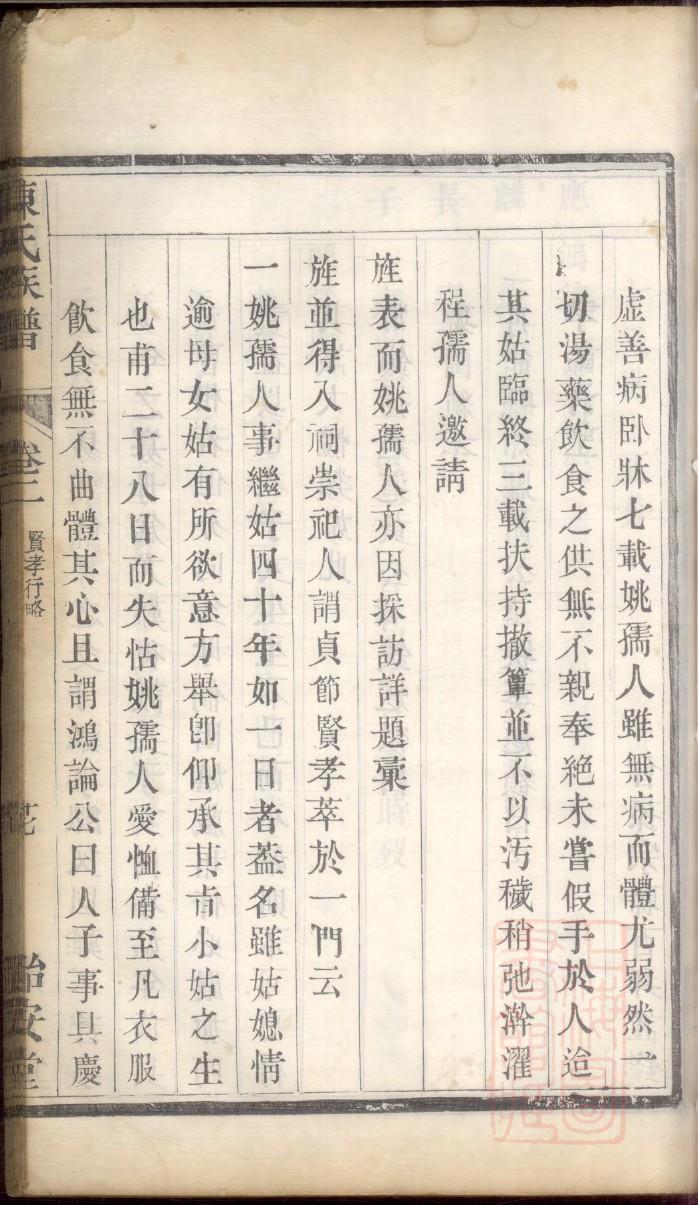 虛善病卧牀七載姚孺人雖無病而體尤弱然一
切湯藥飲食之供無不親奉絶未嘗假手於人迨
其姑臨終三載扶持撤簟並不以汚穢稍弛澣濯
程孺人邀請
旌表而姚孺人亦因採訪詳題彙
旌並得入祠崇祀人謂貞節賢孝萃於一門云
一姚孺人事繼姑四十年如一日者葢名雖姑媳情
逾母女姑有所欲意方舉卽仰承其旨小姑之生
也甫二十八日而失怙姚孺人愛恤備至凡衣服
飲食無不曲體其心且謂鴻論公曰人子事具慶
陳氏族譜
卷二
賢孝行略
怡安堂